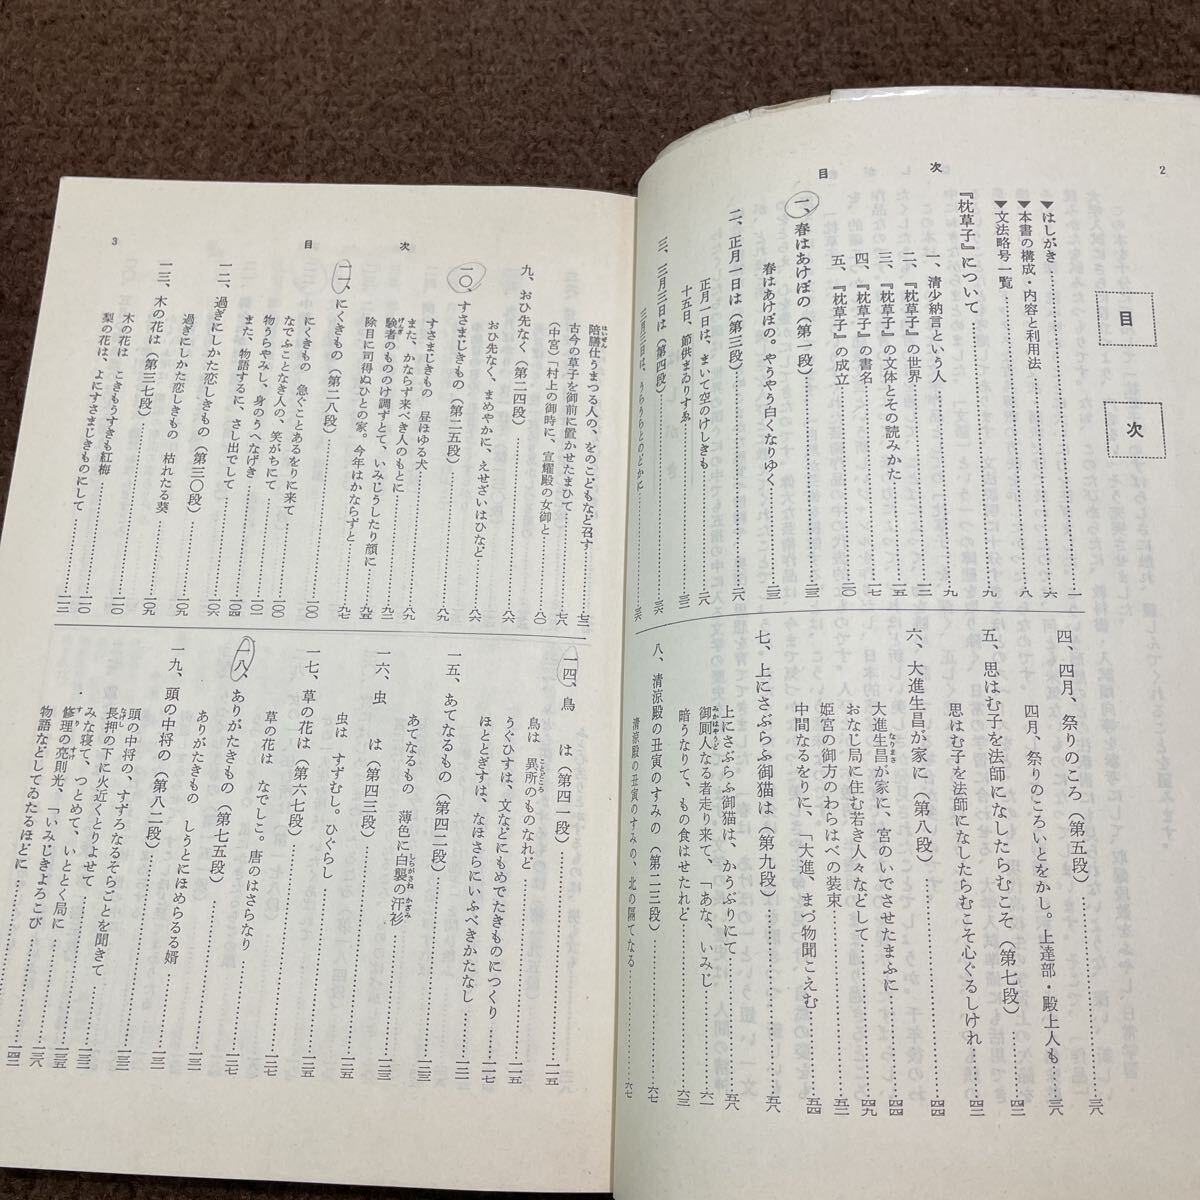 2
目次
目次
▼はしがき……一
▼本書の構成・内容と利用法……六
▼文法略号一覧……八
『枕草子』について……九
一、清少納言という人……九
二、『枕草子』の世界……一二
三、『枕草子』の文体とその読みかた……一五
四、『枕草子』の書名……一七
五、『枕草子』の成立……二〇
一、春はあけぼの（第一段）……二三
春はあけぼの。やうやう白くなりゆく……二三
二、正月一日は（第三段）……二八
正月一日は、まいて空のけしきも……二八
十五日、節供まゐりすゑ……三二
三、三月三日は（第四段）……三六
三月三日は、うらうらとのどかに……三六
四、四月、祭りのころ（第五段）……三八
四月、祭りのころいとをかし。上達部・殿上人も……三八
五、思はむ子を法師になしたらむこそ（第七段）……四二
思はむ子を法師になしたらむこそ心ぐるしけれ……四二
六、大進生昌が家に（第八段）……四四
大進生昌が家に、宮のいでさせたまふに……四四
おなじ局に住む若き人々などして……四九
姫宮の御方のわらはべの装束……五二
中間なるをりに、「大進、まづ物聞こえむ……五四
七、上にさぶらふ御猫は（第九段）……五八
上にさぶらふ御猫は、かうぶりにて……五八
御厠人なる者走り来て、「あな、いみじ……六一
暗うなりて、もの食はせたれど……六三
八、清涼殿の丑寅のすみの（第二三段）……六七
清涼殿の丑寅のすみの、北の隔てなる……六七
3
目次
陪膳仕うまつる人の、をのこどもなど召す……七二
古今の草子を御前に置かせたまひて……七六
（中宮）「村上の御時に、宣耀殿の女御と……八〇
九、おひ先なく（第二四段）……八六
おひ先なく、まめやかに、えせざいはひなど……八六
一〇、すさまじきもの（第二五段）……八九
すさまじきもの　昼ほゆる犬……八九
また、かならず来べき人のもとに……九一
験者のもののけ調ずとて、いみじうしたり顔に……九二
除目に司得ぬひとの家。今年はかならずと……九五
一一、にくきもの（第二八段）……九七
にくきもの　急ぐことあるをりに来て……一〇〇
なでふことなき人の、笑がちにて……一〇〇
物うらやみし、身のうへなげき……一〇一
また、物語するに、さし出でして……一〇四
一二、過ぎにしかた恋しきもの（第三〇段）……一〇九
過ぎにしかた恋しきもの　枯れたる葵……一〇九
一三、木の花は（第三七段）……一〇九
木の花は　こきもうすきも紅梅……一一〇
梨の花は、よにすさまじきものにして……一一二
一四、鳥は（第四一段）……一一五
鳥は　異所のものなれど……一一五
うぐひすは、文などにもめでたきものにつくり……一一七
ほととぎすは、なほさらにいふべきかたなし……一二〇
一五、あてなるもの（第四二段）……一二二
あてなるもの　薄色に白襲の汗衫……一二二
一六、虫は（第四三段）……一二三
虫は　すずむし。ひぐらし……一二三
一七、草の花は（第六七段）……一二五
草の花は　なでしこ。唐のはさらなり……一二五
一八、ありがたきもの（第七五段）……一二七
ありがたきもの　しうとにほめらるる婿……一二七
一九、頭の中将の（第八二段）……一三一
頭の中将の、すずろなるそらごとを聞きて……一三一
長押の下に火近くとりよせて……一三二
みな寝て、つとめて、いととく局に……一三五
修理の亮則光、「いみじきよろこび……一三八
物語などしてゐたるほどに……一四二